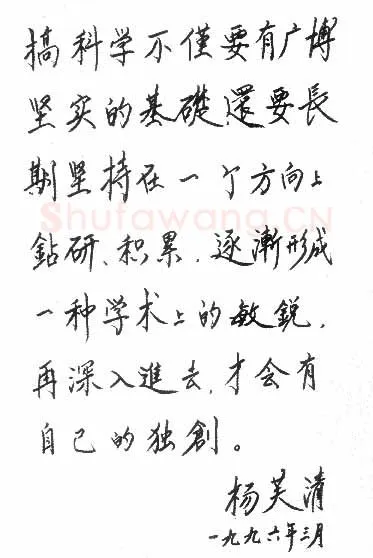 搞科学不僅要有广博
坚实的基礎還要長
期坚持在一个方向上
Shufawang.CN
鉆研、积累，逐漸形成
一种学术上的敏銳，
再深入進去，才会有
自己的独創。
杨芙清
一九九六年三月